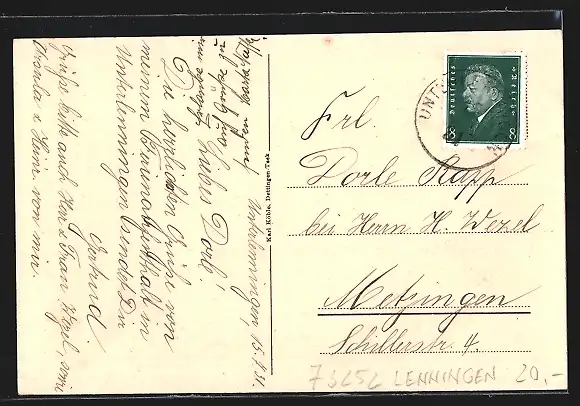 Unterlenningen, 15. 31.
Liebes Dorle!
Die herzlichsten Grüße von
meinem Aufenthalt in
Unterlenningen sendet Dir
Gertrud
Grüße bitte auch Herr & Frau Wezel, sowie
Ursula & Heinz von mir.
Karl Köhle, Dettingen-Teck
UNTE
Deutsches Reich
8 8
Frl.
Dorle Rapp
bei Herrn H. Wezel
Metzingen
Schillerstr. 4.
73252 LENNINGEN 20,-